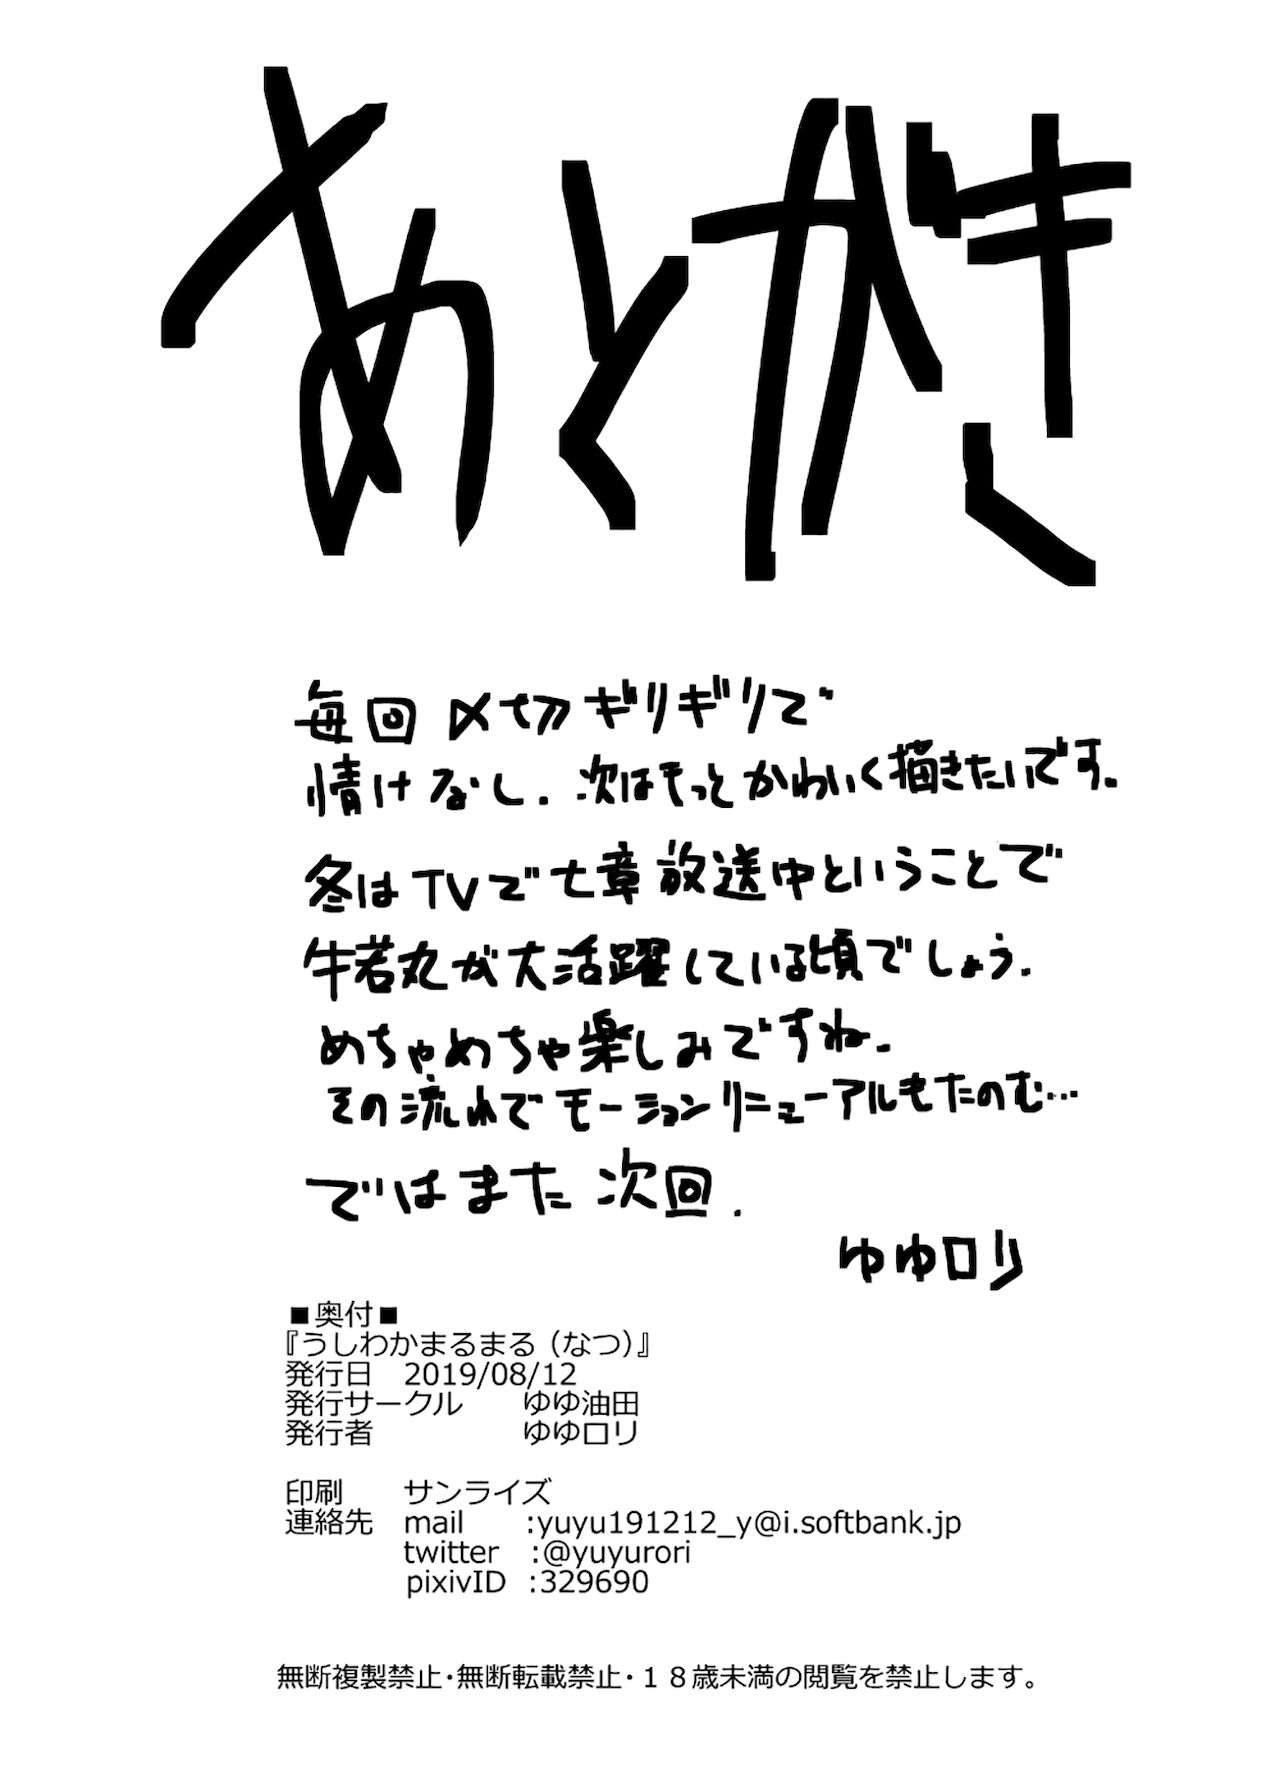 あとがき
毎回〆切ギリギリで
情けなし．次はもっとかわいく描きたいです．
冬はTVで七章放送中ということで
牛若丸が大活躍している頃でしょう．
めちゃめちゃ楽しみですね．
その流れでモーションリニューアルもたのむ…
ではまた次回．
ゆゆロリ
■奥付■
『うしわかまるまる（なつ）』
発行日　2019/08/12
発行サークル　　ゆゆ油田
発行者　　　　　ゆゆロリ
印刷　　サンライズ
連絡先　mail　　:yuyu191212_y@i.softbank.jp
twitter　:@yuyurori
pixivID　:329690
無断複製禁止・無断転載禁止・１８歳未満の閲覧を禁止します。